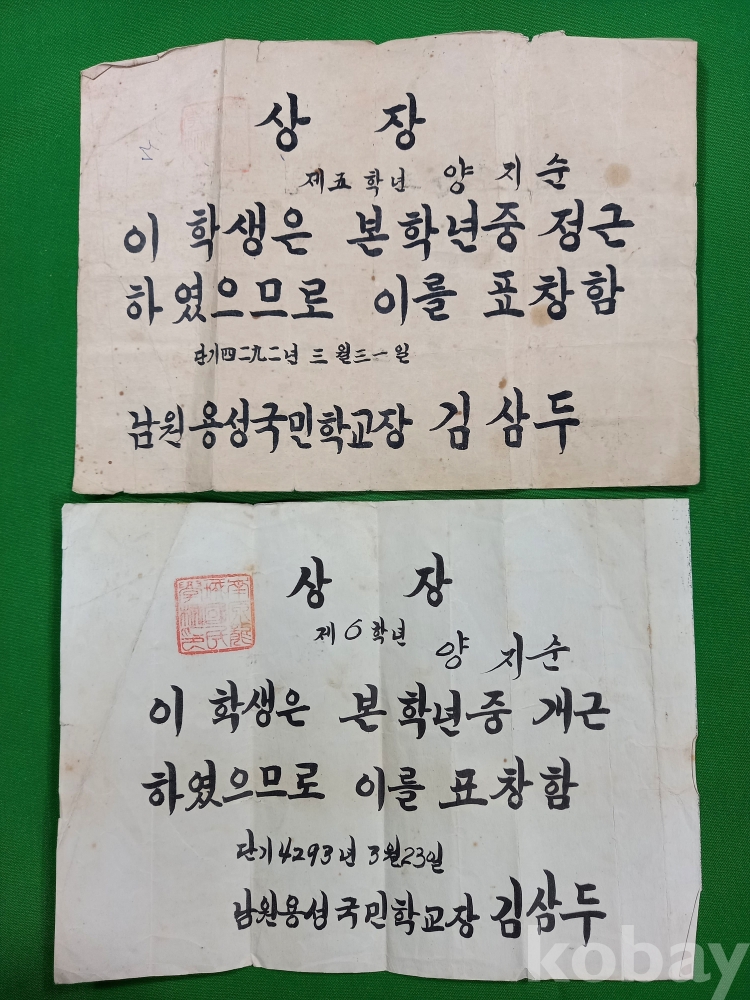 상 장
제五학년 양지순
이 학생은 본학년중 정근
하였으므로 이를 표창함
단기四二九二년 三월三一일
남원용성국민학교장 김삼두
상 장
제6학년 양지순
이 학생은 본학년중 개근
하였으므로 이를 표창함
단기4293년 3월23일
남원용성국민학교장 김삼두
kobay